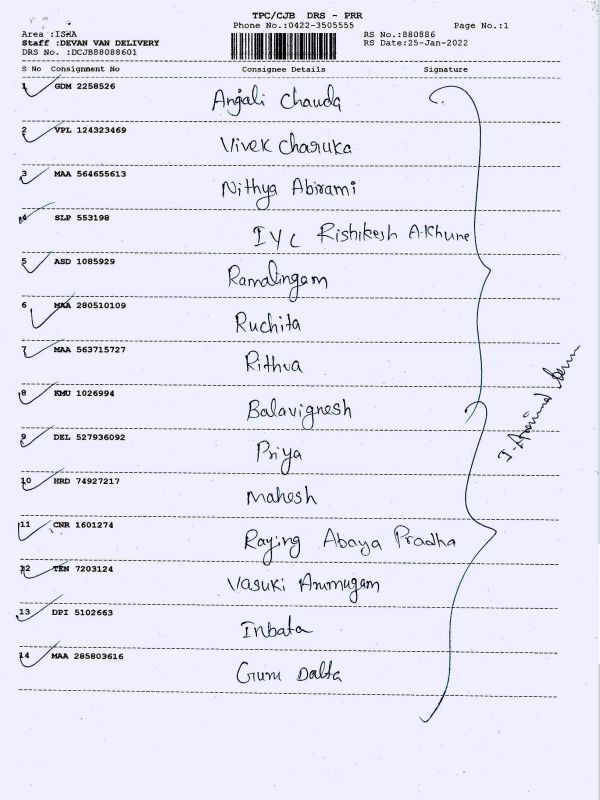 TPC/CJB DRS - PRR
Phone No.:0422-3505555 Page No.:1
Area :ISWA RS No.:880886
Staff :DEVAN VAN DELIVERY RS Date:25-Jan-2022
DRS No. :DCJB88088601
S No Consignment No Consignee Details Signature
1 GDM 2258526 Anjali Chauda
2 VPL 124323469 Vivek Charuka
3 MAA 564655613 Nithya Abirami
4 SLP 553198 IYC Rishikesh A.Khune
5 ASD 1085929 Ramalingam
6 MAA 280510109 Ruchita
7 MAA 563715727 Rithva
8 KMU 1026994 Balavignesh
9 DEL 527936092 Priya
10 HRD 74927217 Mahesh
11 CNR 1601274 Raying Abaya Pradha
12 TEN 7203124 Vasuki Arumugam
13 DPI 5102663 Inbata
14 MAA 285803616 Guru Datta